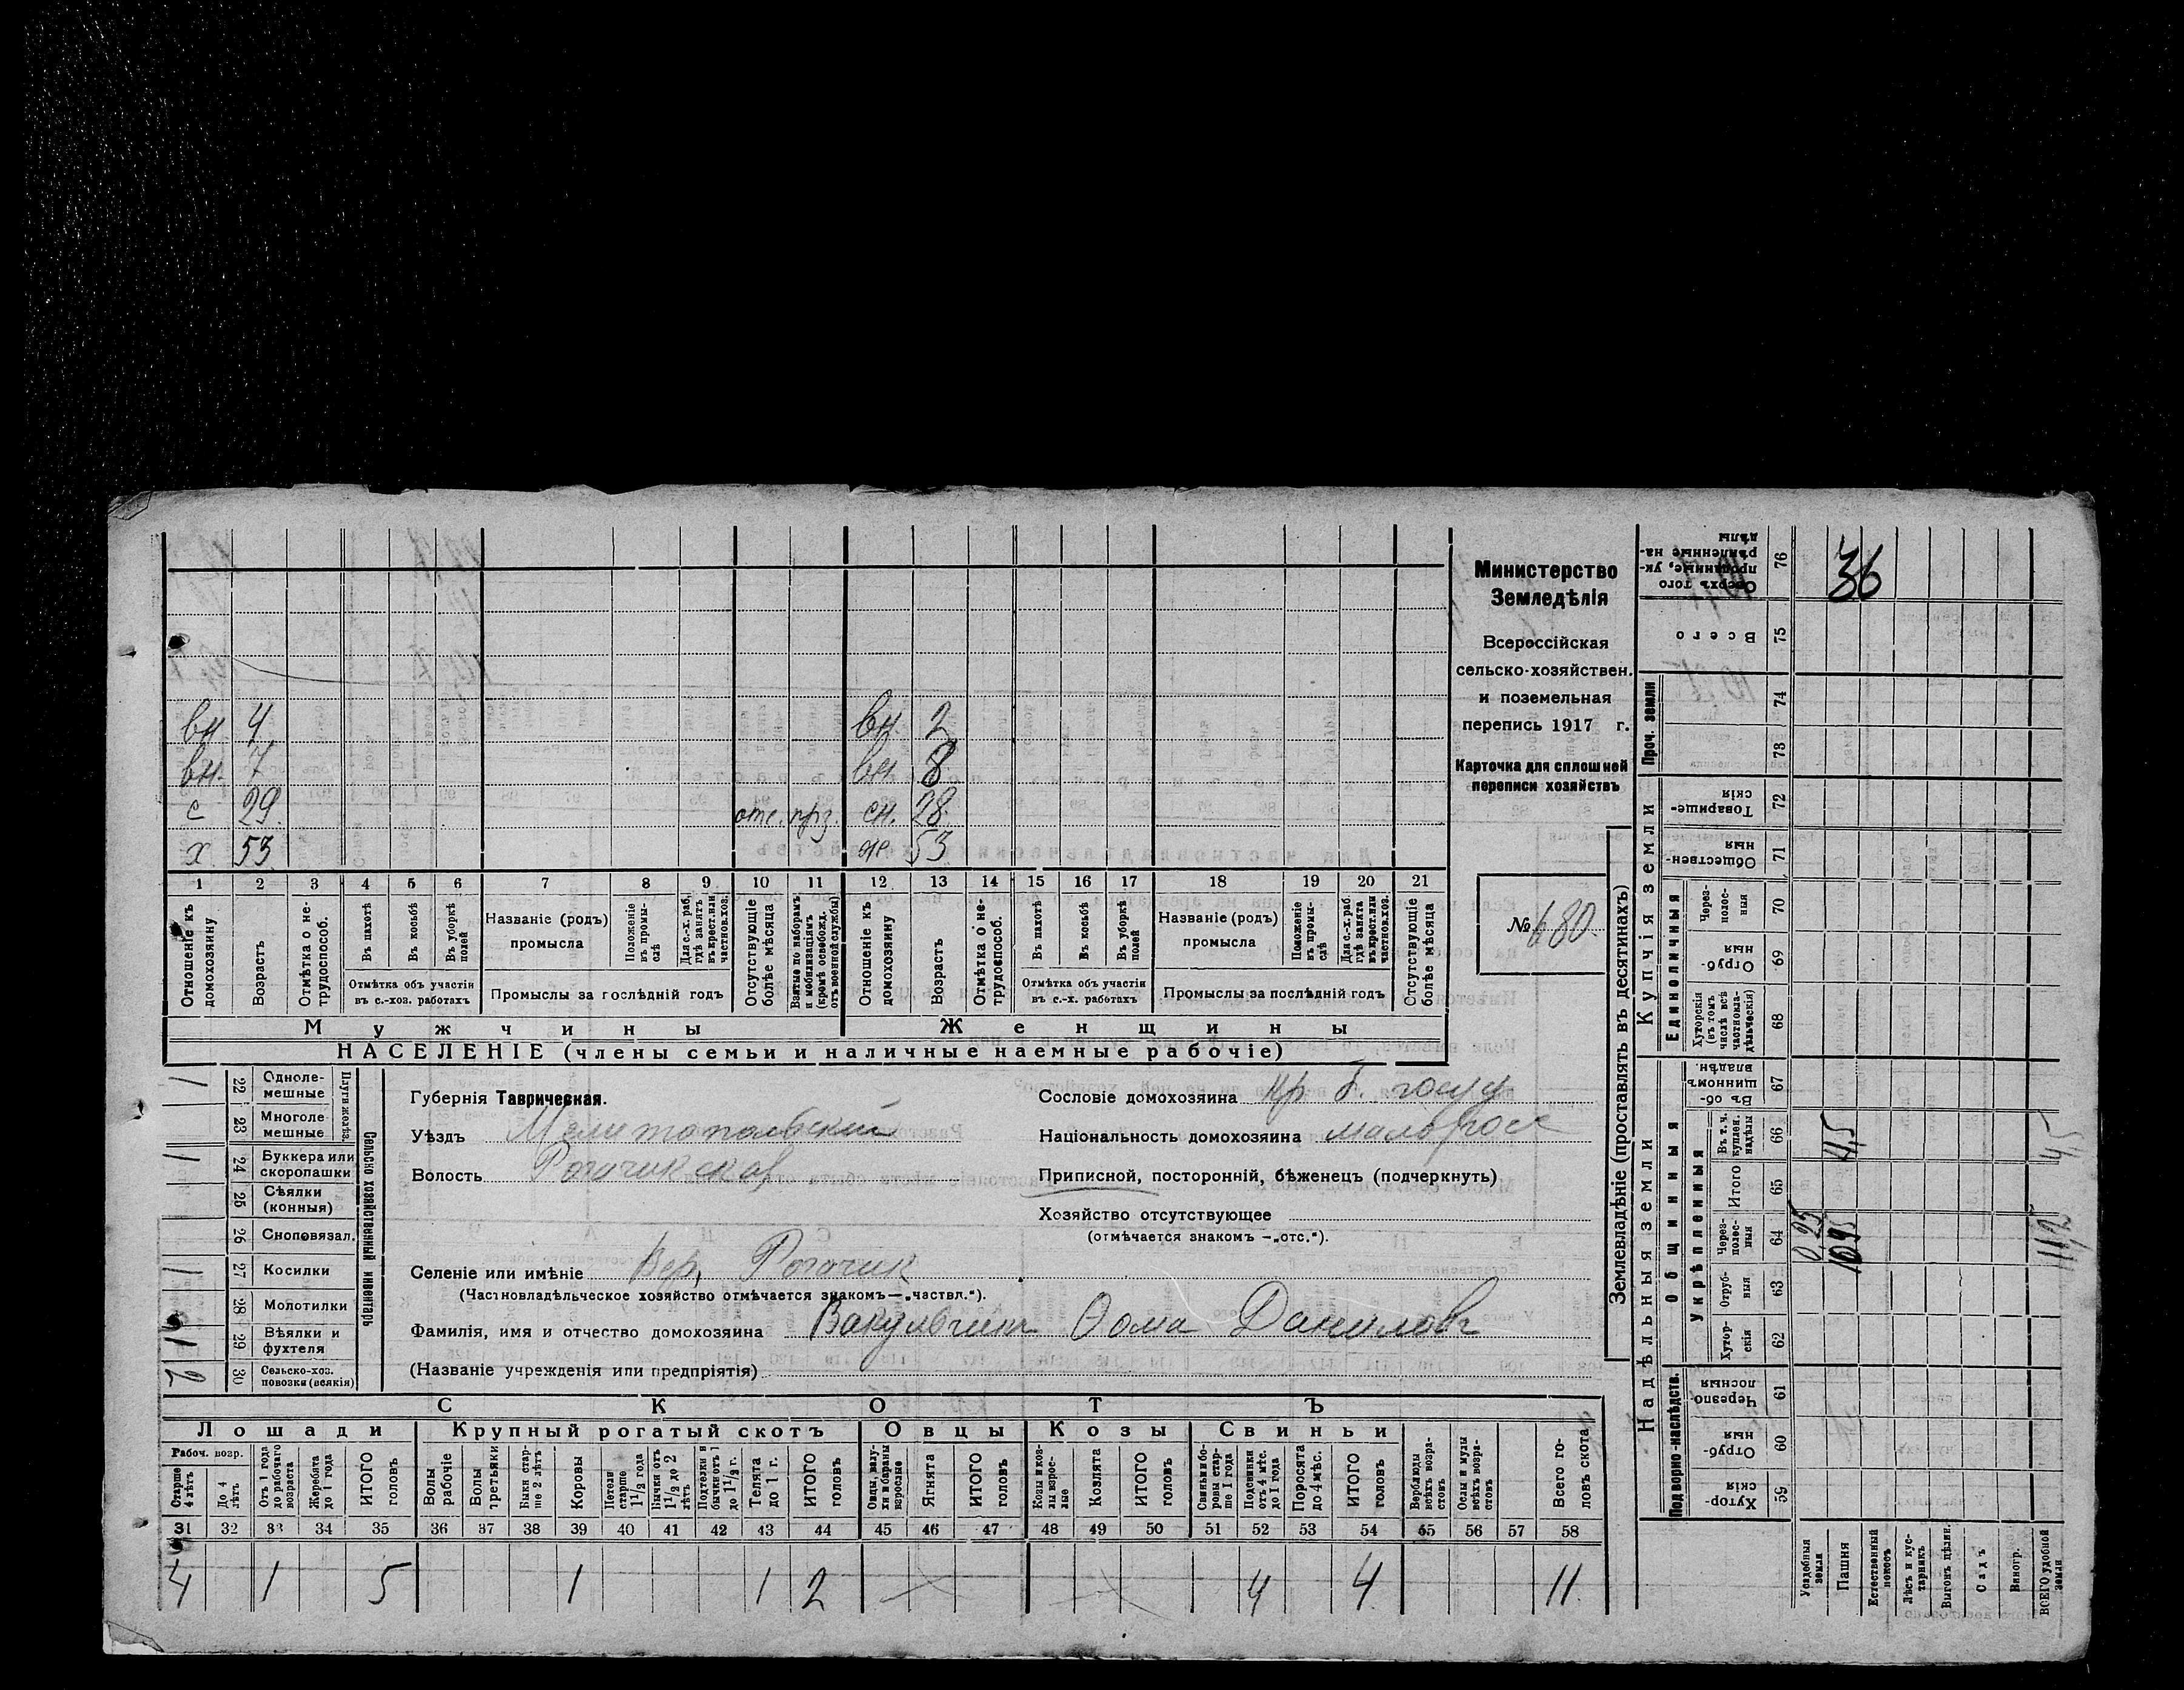 вн. 4 вн. 2
вн. 7 вн. 8
с 29. отс. прз. сн. 28.
х 53 ж. 53
1 2 3 4 5 6 7 8 9 10 11 12 13 14 15 16 17 18 19 20 21
Отношеніе къ домохозяину
Возрастъ
Отмѣтка о нетрудоспособ.
Въ пахотѣ
Въ косьбѣ
Въ уборкѣ полей
Отмѣтка объ участіи въ с.-хоз. работахъ
Названіе (родъ) промысла
Положеніе въ промыслѣ
Для с.-х. раб. гдѣ занятъ въ крест. или частнов. хоз.
Промыслы за послѣдній годъ
Отсутствующіе болѣе мѣсяца
Взятые по наборамъ и мобилизаціямъ (кромѣ освобожд. отъ военной службы)
Отношеніе къ домохозяину
Возрастъ
Отмѣтка о нетрудоспособ.
Въ пахотѣ
Въ косьбѣ
Въ уборкѣ полей
Отмѣтка объ участіи въ с.-х. работахъ
Названіе (родъ) промысла
Положеніе въ промыслѣ
Для с.-х. раб. гдѣ занята въ крест. или частнов. хоз.
Промыслы за послѣдній годъ
Отсутствующіе болѣе мѣсяца
Мужчины Женщины
НАСЕЛЕНІЕ (члены семьи и наличные наемные рабочіе)
Министерство
Земледѣлія
Всероссійская
сельско-хозяйствен.
и поземельная
перепись 1917 г.
Карточка для сплошной
переписи хозяйствъ
№ 680.
Сельско хозяйственный инвентарь
Плуги желѣз.
1 22 Одноле-мешные
23 Многоле-мешные
1 24 Буккера или скоропашки
25 Сѣялки (конныя)
26 Сноповязал.
1 27 Косилки
28 Молотилки
1 29 Вѣялки и фухтеля
30 Сельско-хоз. повозки (всякія)
Губернія Таврическая.
Уѣздъ Мелитопольский
Волость Рогачикская
Селеніе или имѣніе Вер. Рогачик
(Частновладѣльческое хозяйство отмѣчается знакомъ—„частвл.“).
Фамилія, имя и отчество домохозяина Вакульчик Ѳома Данилов
(Названіе учрежденія или предпріятія)
Сословіе домохозяина кр. б. госуд
Національность домохозяина малоросс
Приписной, посторонній, бѣженецъ (подчеркнуть)
Хозяйство отсутствующее
(отмѣчается знакомъ —„отс.“).
СКОТЪ
Лошади Крупный рогатый скотъ Овцы Козы Свиньи
Рабоч. возр.
Старше 4 лѣтъ
До 4 лѣтъ
Отъ 1 года до рабочаго возраста
Жеребята до 1 года
ИТОГО головъ
Волы рабочіе
Волы третьяки
Быки старше 2 лѣтъ
Коровы
Нетели старше 1 1/2 года
Бычки отъ 1 1/2 до 2 лѣтъ
Подтелки и бычки отъ 1 до 1 1/2 г.
Телята до 1 г.
ИТОГО головъ
Овцы, валухи и бараны взрослые
Ягнята
ИТОГО головъ
Козы и козлы взрослые
Козлята
ИТОГО головъ
Свиньи и боровы старше 1 года
Подсвинки отъ 4 мѣс. до 1 года
Поросята до 4 мѣс.
ИТОГО головъ
Верблюды всѣхъ возрастовъ
Ослы и мулы всѣхъ возрастовъ
Всего головъ скота
31 32 33 34 35 36 37 38 39 40 41 42 43 44 45 46 47 48 49 50 51 52 53 54 55 56 57 58
4 1 5 1 1 2 4 4 11.
Землевладѣніе (проставлять въ десятинахъ)
Купчія земли
Надѣльныя земли
Сверхъ того проданные, укрѣпленные надѣлы 76 36
Всего 75
Проч. земли 74 73
Товарищескія 72
Общественныя 71
Единоличныя
Черезполосныя 70
Отрубныя 69
Хуторскія (въ томъ числѣ всѣ частновладѣльческія) 68
Общинныя
Въ общинномъ владѣн. 67
Укрѣпленныя
Въ т. ч. куплен. надѣлы 66 4,5 4,5
Итого 65
Черезполосныя 64 0,25 10,95 11,2
Отрубныя 63
Хуторскія 62
Подворно-наслѣдств.
Черезполосныя 61
Отрубныя 60
Хуторскія 59
Усадебныя земли
Пашня
Естественный покосъ
Лѣсъ и кустарникъ
Выгонъ цѣлин.
Садъ
Виногр.
ВСЕГО удобной земли